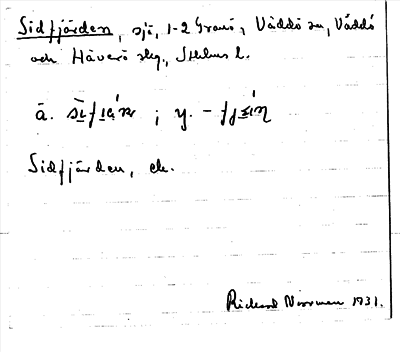 Sidfjärden, sjö, 1-2 Granö, Väddö sn, Väddö
och Häverö skg., Sthlms l.
ä. ; y. -
Sidfjärden, ek.
Rickard Norrman 1931.